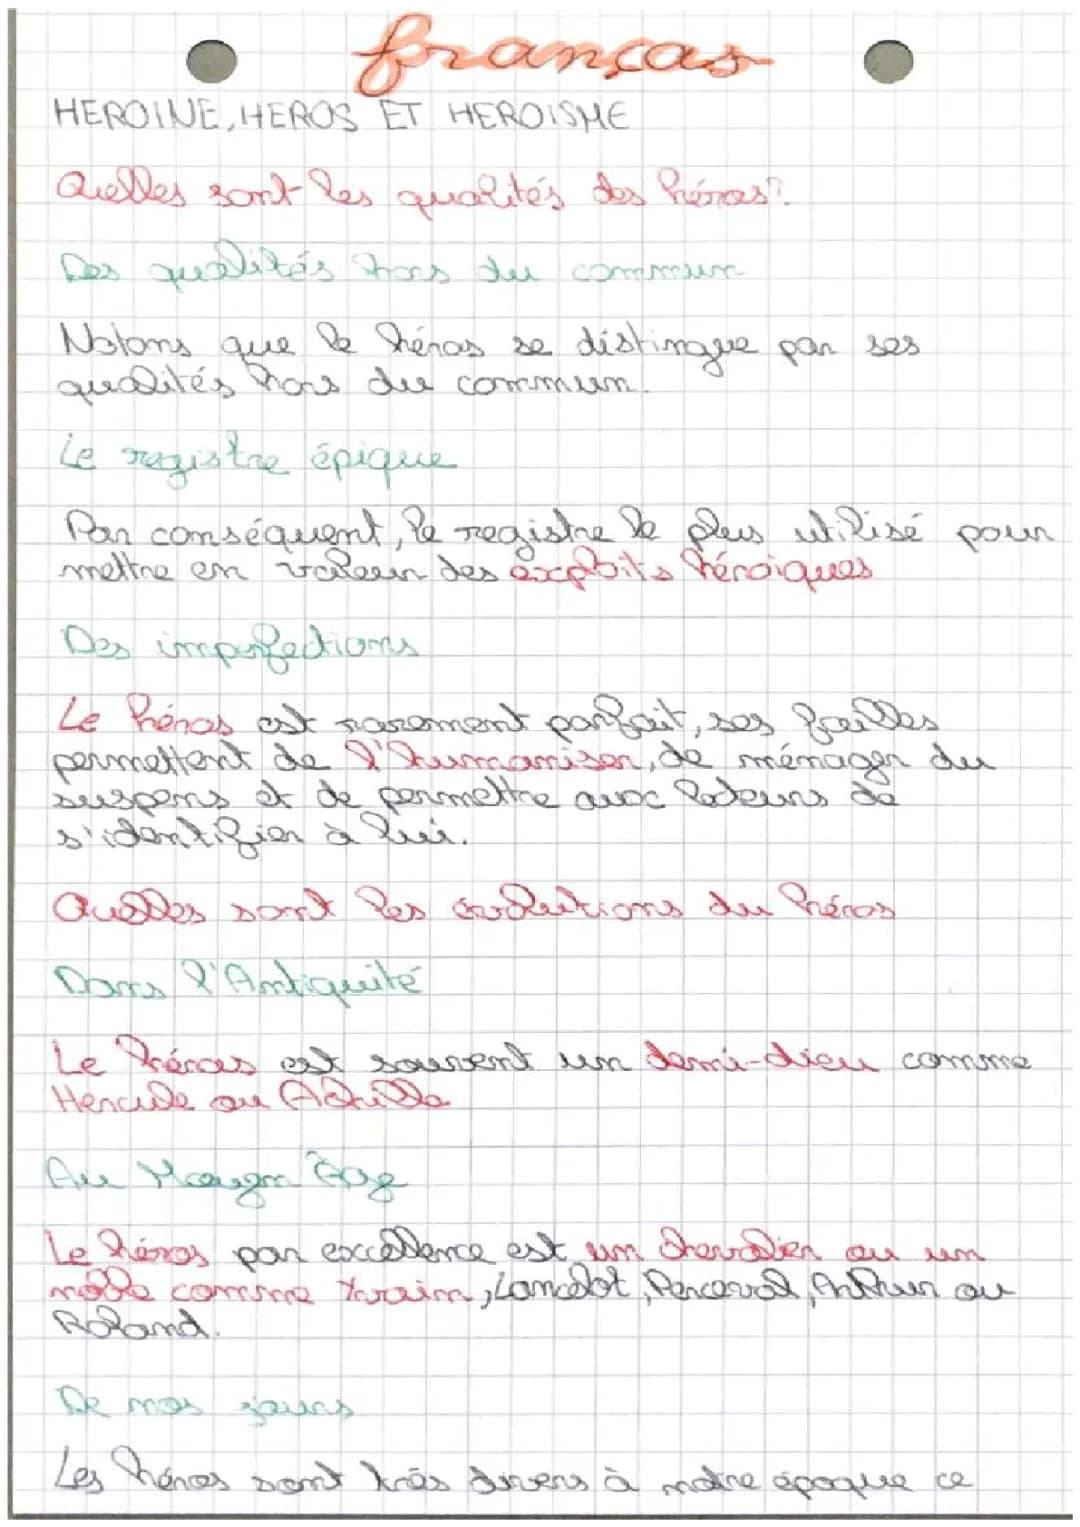 franças
HEROINE, HEROS ET HEROISME
Quelles sont les qualités des héros?
Des qualités hors du commun
Notons que le héros se distingue par ses
qualités hors du commun.
Le registre épique
Par conséquent, le registre le plus utilisé pour
mettre en valeur des exploits héroïques
Des imperfections
Le héros est rarement parfait, ses failles
permettent de l'humaniser, de ménager du
suspens et de permettre aux lecteurs de
s'identifier à lui.
Quelles sont les évolutions du héros
Dans l'Antiquité
Le héros est souvent un demi-dieu comme
Hercule ou Achille
Au Moyen Âge
Le héros par excellence est un chevalier ou un
noble comme Yvain, Lancelot, Perceval, Arthur ou
Roland.
De nos jours
Les héros sont très divers à notre époque ce